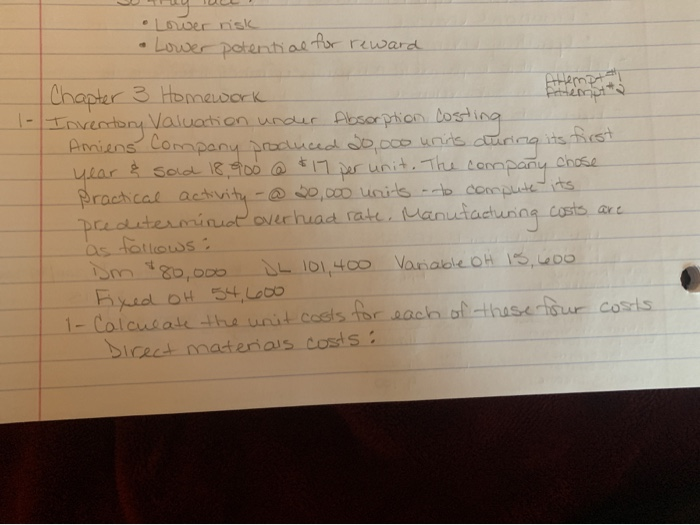 • Lower risk
• Lower potential for reward
Attempt #1
Attempt #2
Chapter 3 Homework
1- Inventory Valuation under Absorption Costing
Amiens Company produced 20,000 units during its first
year & sold 18,900 @ $17 per unit. The company chose
practical activity - @ 20,000 units - to compute its
predetermined overhead rate. Manufacturing costs are
as follows:
Dm $80,000 DL 101,400 Variable OH 15,600
Fixed OH 54,600
1- Calculate the unit costs for each of these four costs
Direct materials costs: